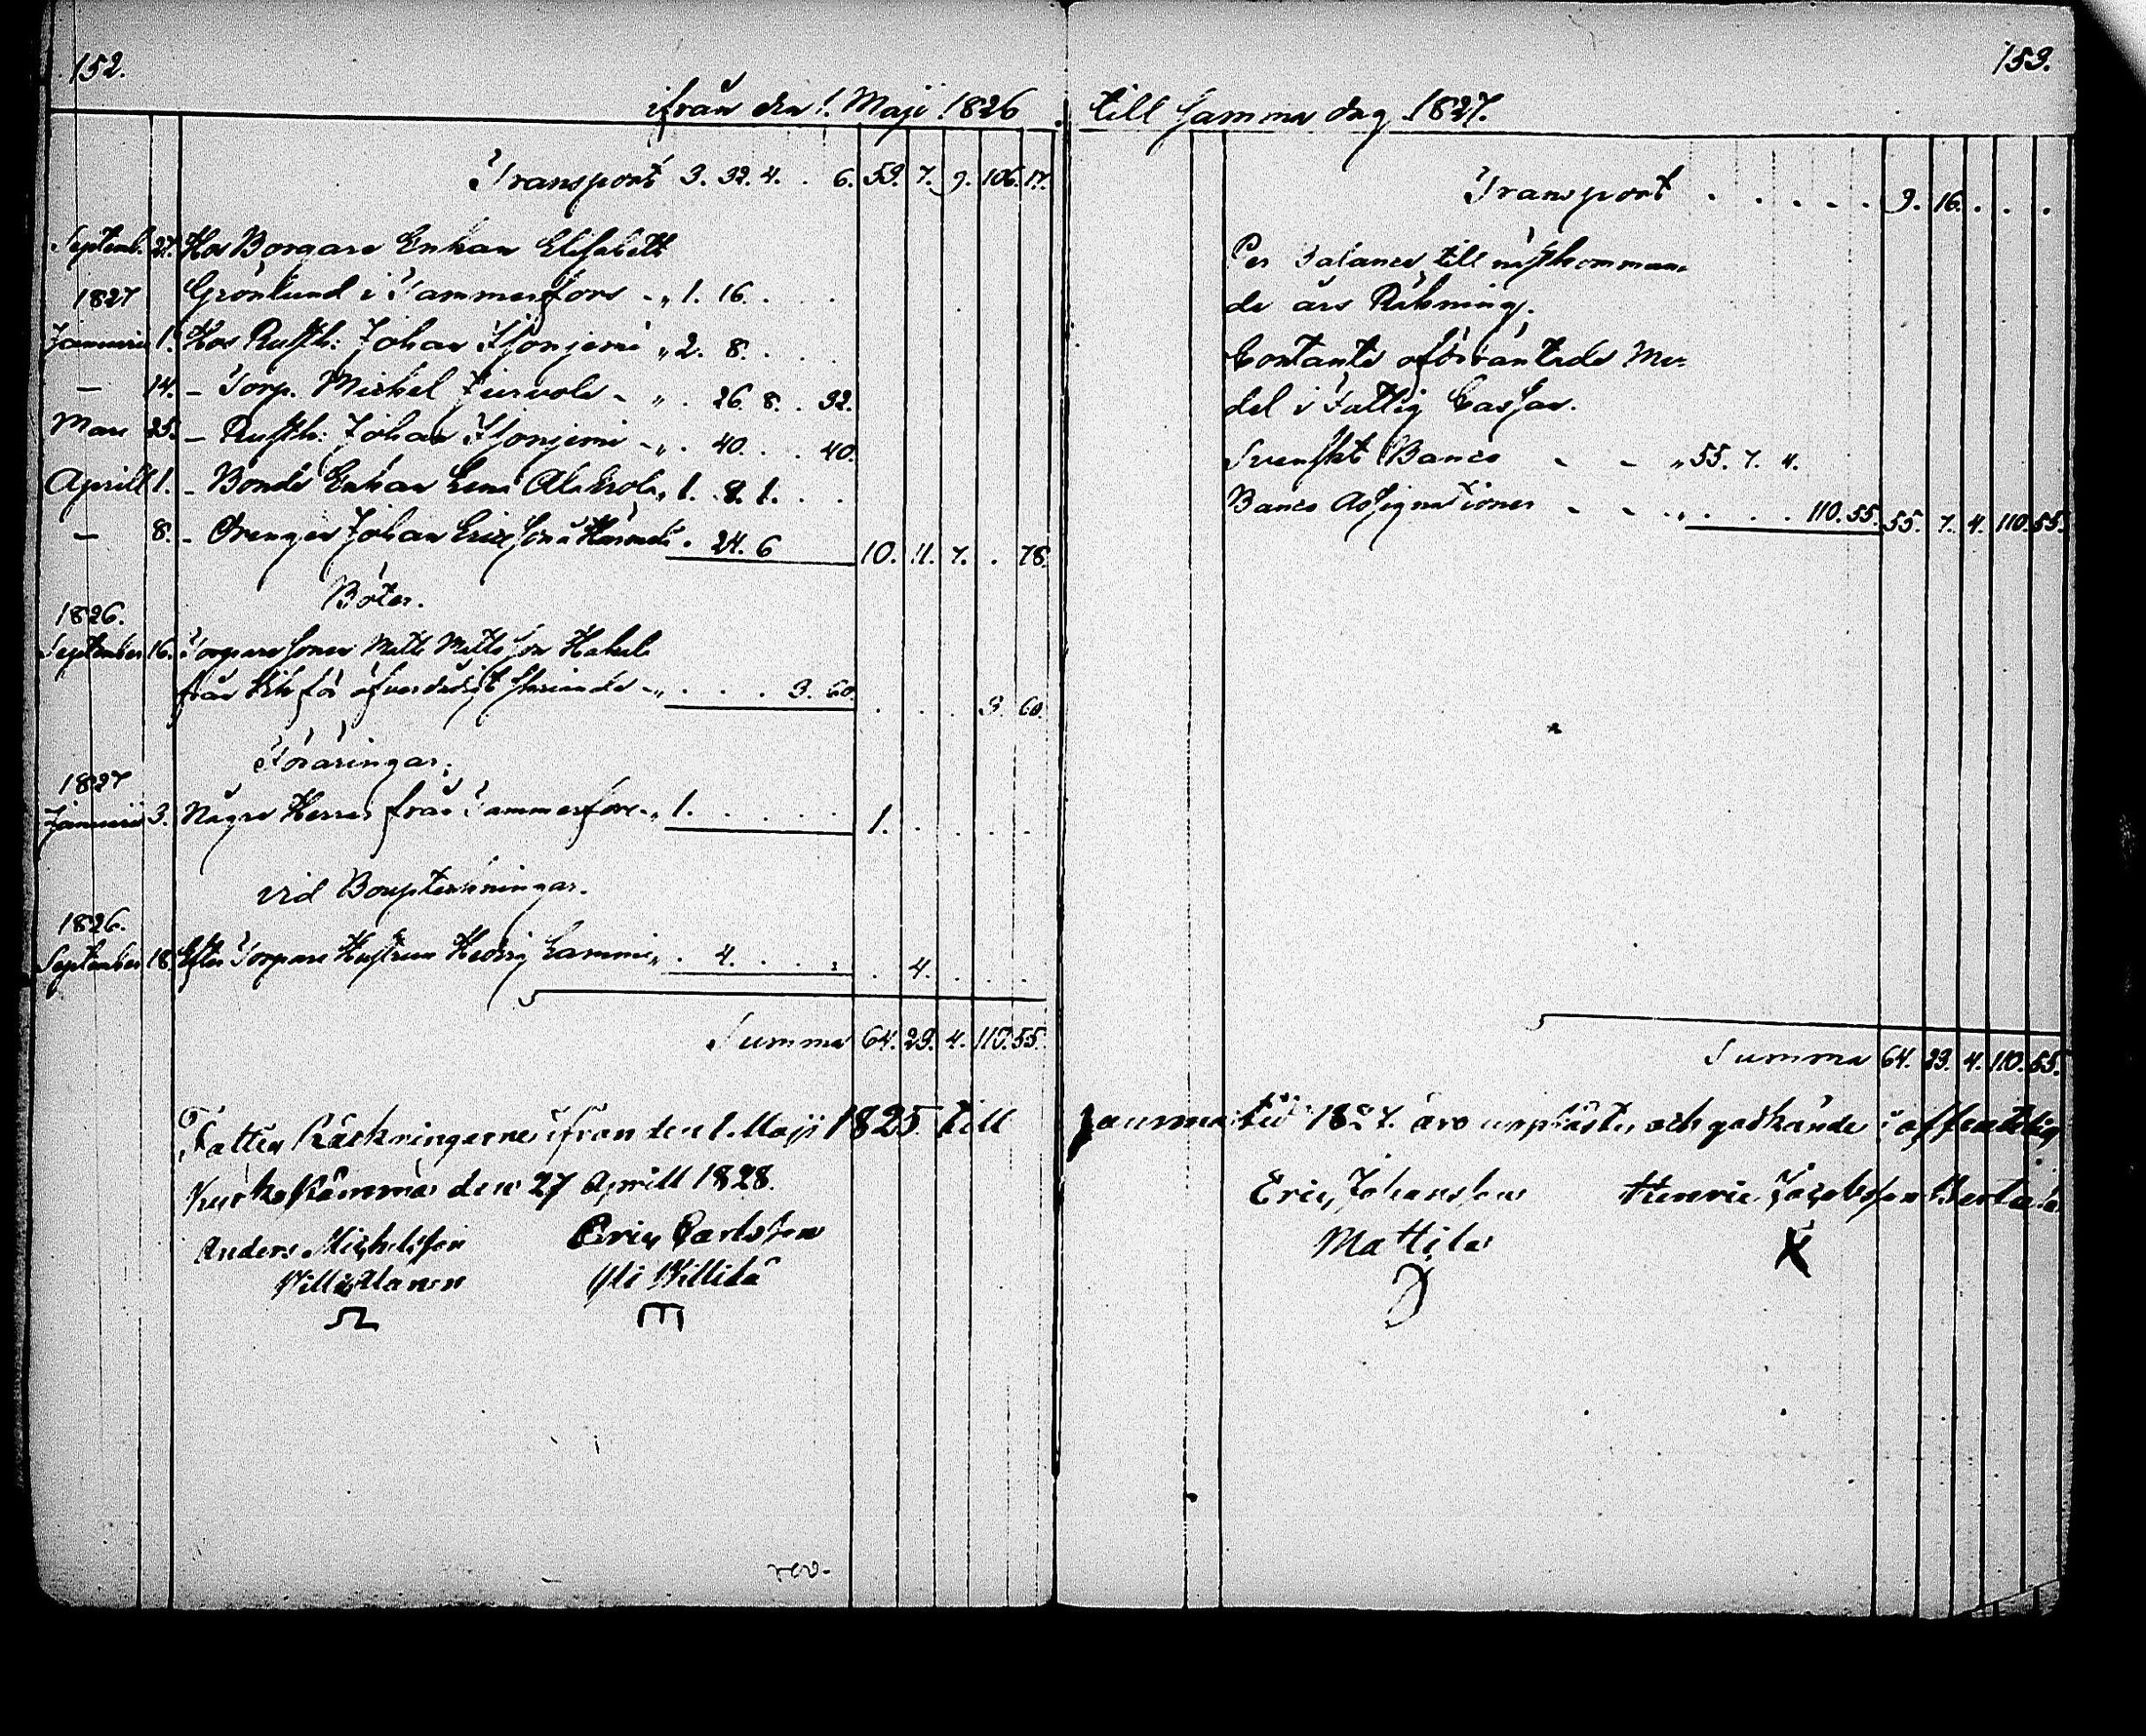 152.
ifrån den 1. Maji 1826
Transport 3. 32. 4. . 6. 53. 7. 9. 106. 17.
Septemb. 27. Hos Borgare Enkan Elisabeth
1827 Grönlund i Tammerfors - „ 1. 16. . .
Januarii 1. Hos Rusth: Johan „ 2. 8. . . .
— 14. - Torp. Michel - „ . 26. 8. . 32.
Mars 25. - Rusth: Johan - „ . 40. . . 40.
Aprill 1. - Bonde Enkan Lena „ 1. 8. 1. . .
— 8. - Drengen Johan . 24. 6 10. 11. 7. . 78.
Böter.
1826.
September 16. Torpare Sonen Matts Mattsson
från för - „ . . . 3. 60. . . . 3. 60.
Föräringar.
1827
Januarii 3. Några Herrar från Tammerfors - „ 1. . . . . 1. . . . .
vid Bouptekningar.
1826.
September 18. Efter Torpare Hustrun Hedvig Lammi „ . 4. . . . . 4. . . .
Summa 64. 23. 4. 110. 55.
Fattig Räkningarne ifrån den 1. Maji 1825 till
Kyrko Stämma den 27 Aprill 1828.
Anders Michelsson Eric Carlsson
Yli
rev.
153.
till samma dag 1827.
Transport . . . . . 9. 16. . . .
Per Balance till nästkomman-
de års Räkning.
Contante oförräntade Me-
del i Fattig Cassan.
Svenskt Banco - - „ 55. 7. 4.
Banco Assignationer - - „ . . . 110. 55. 55. 7. 4. 110. 55.
Summa 64. 23. 4. 110. 55.
samma tid 1827. äro uppläste och godkände i offentelig
Eric Johansson Henric Jacobsson
Mattila